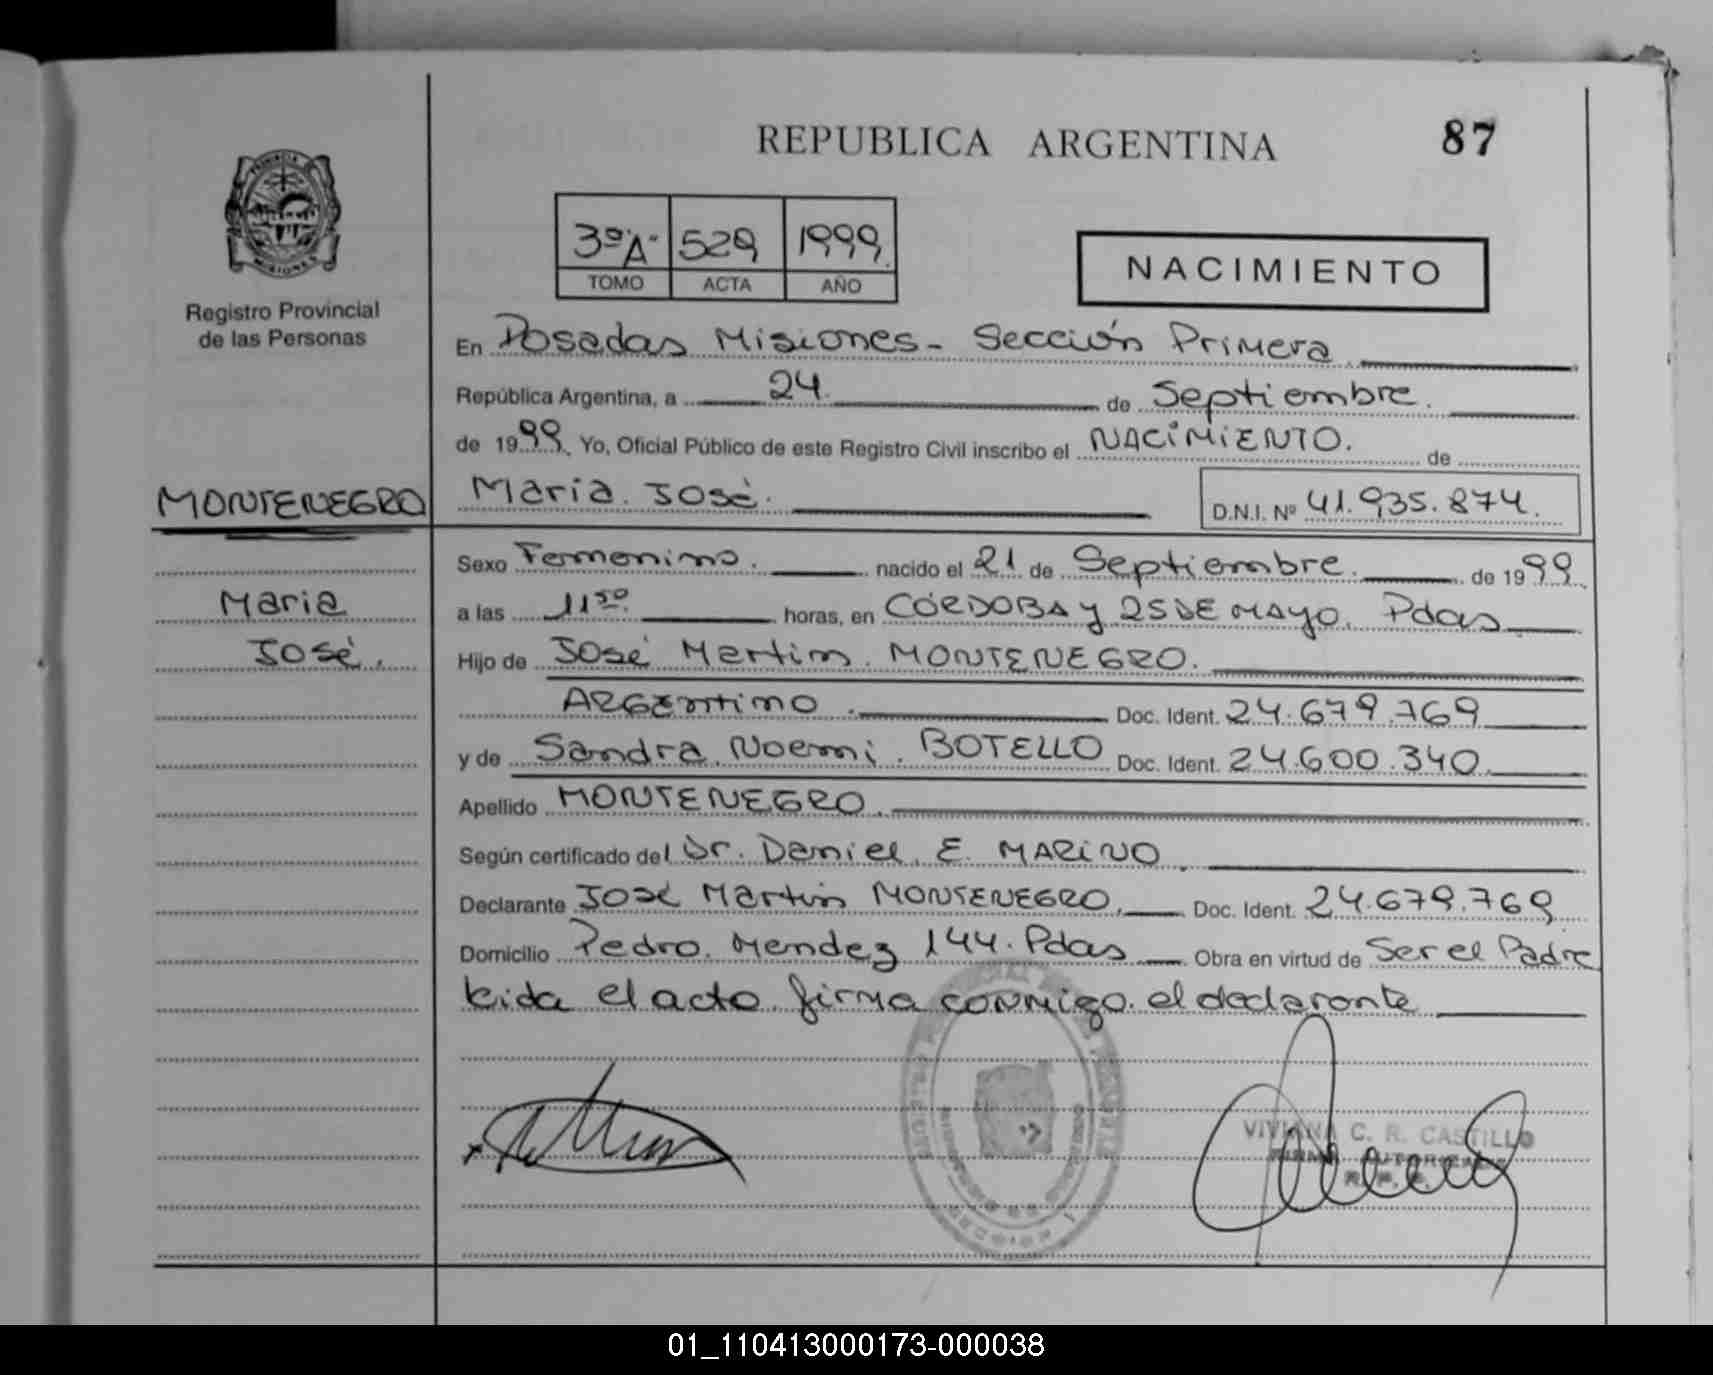 REPUBLICA ARGENTINA
87
PROVINCIA DE
MISIONES
Registro Provincial
de las Personas
3º "A" 529 1999
TOMO ACTA AÑO
NACIMIENTO
En Posadas Misiones - Sección Primera
República Argentina, a 24 de Septiembre
de 1999, Yo, Oficial Público de este Registro Civil inscribo el NACIMIENTO. de
MONTENEGRO
Maria José.
D.N.I. Nº 41.935.874.
Maria
José.
Sexo Femenino. nacido el 21 de Septiembre de 1999
a las 11 50 horas, en CÓRDOBA y 25 DE MAYO. Pdas
Hijo de José Martin MONTENEGRO.
ARGENTINO. Doc. Ident. 24.679.769
y de Sandra Noemi BOTELLO Doc. Ident. 24.600.340
Apellido MONTENEGRO.
Según certificado del Dr. Daniel E. MARINO
Declarante José Martin MONTENEGRO, Doc. Ident. 24.679.769
Domicilio Pedro Mendez 144. Pdas Obra en virtud de Ser el Padre
Leida el acta firma conmigo el declarante
VIVIANA C. R. CASTILLO
FIRMA AUTORIZADA
R. P. P.
01_110413000173-000038